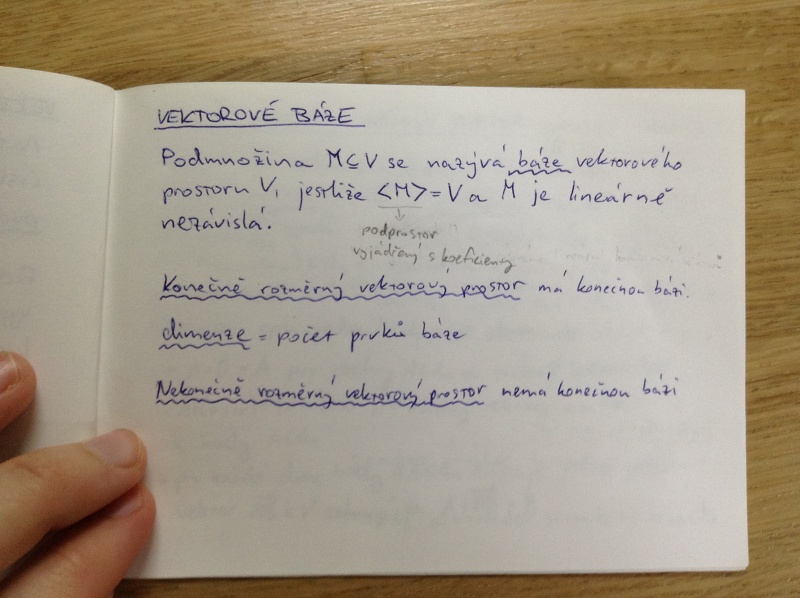 VEKTOROVÉ BÁZE
Podmnožina M⊆V se nazývá báze vektorového
prostoru V, jestliže <M> = V a M je lineárně
nezávislá.
podprostor
vyjádřený s koeficienty
Konečně rozměrný vektorový prostor má konečnou bázi.
dimenze = počet prvků báze
Nekonečně rozměrný vektorový prostor nemá konečnou bázi